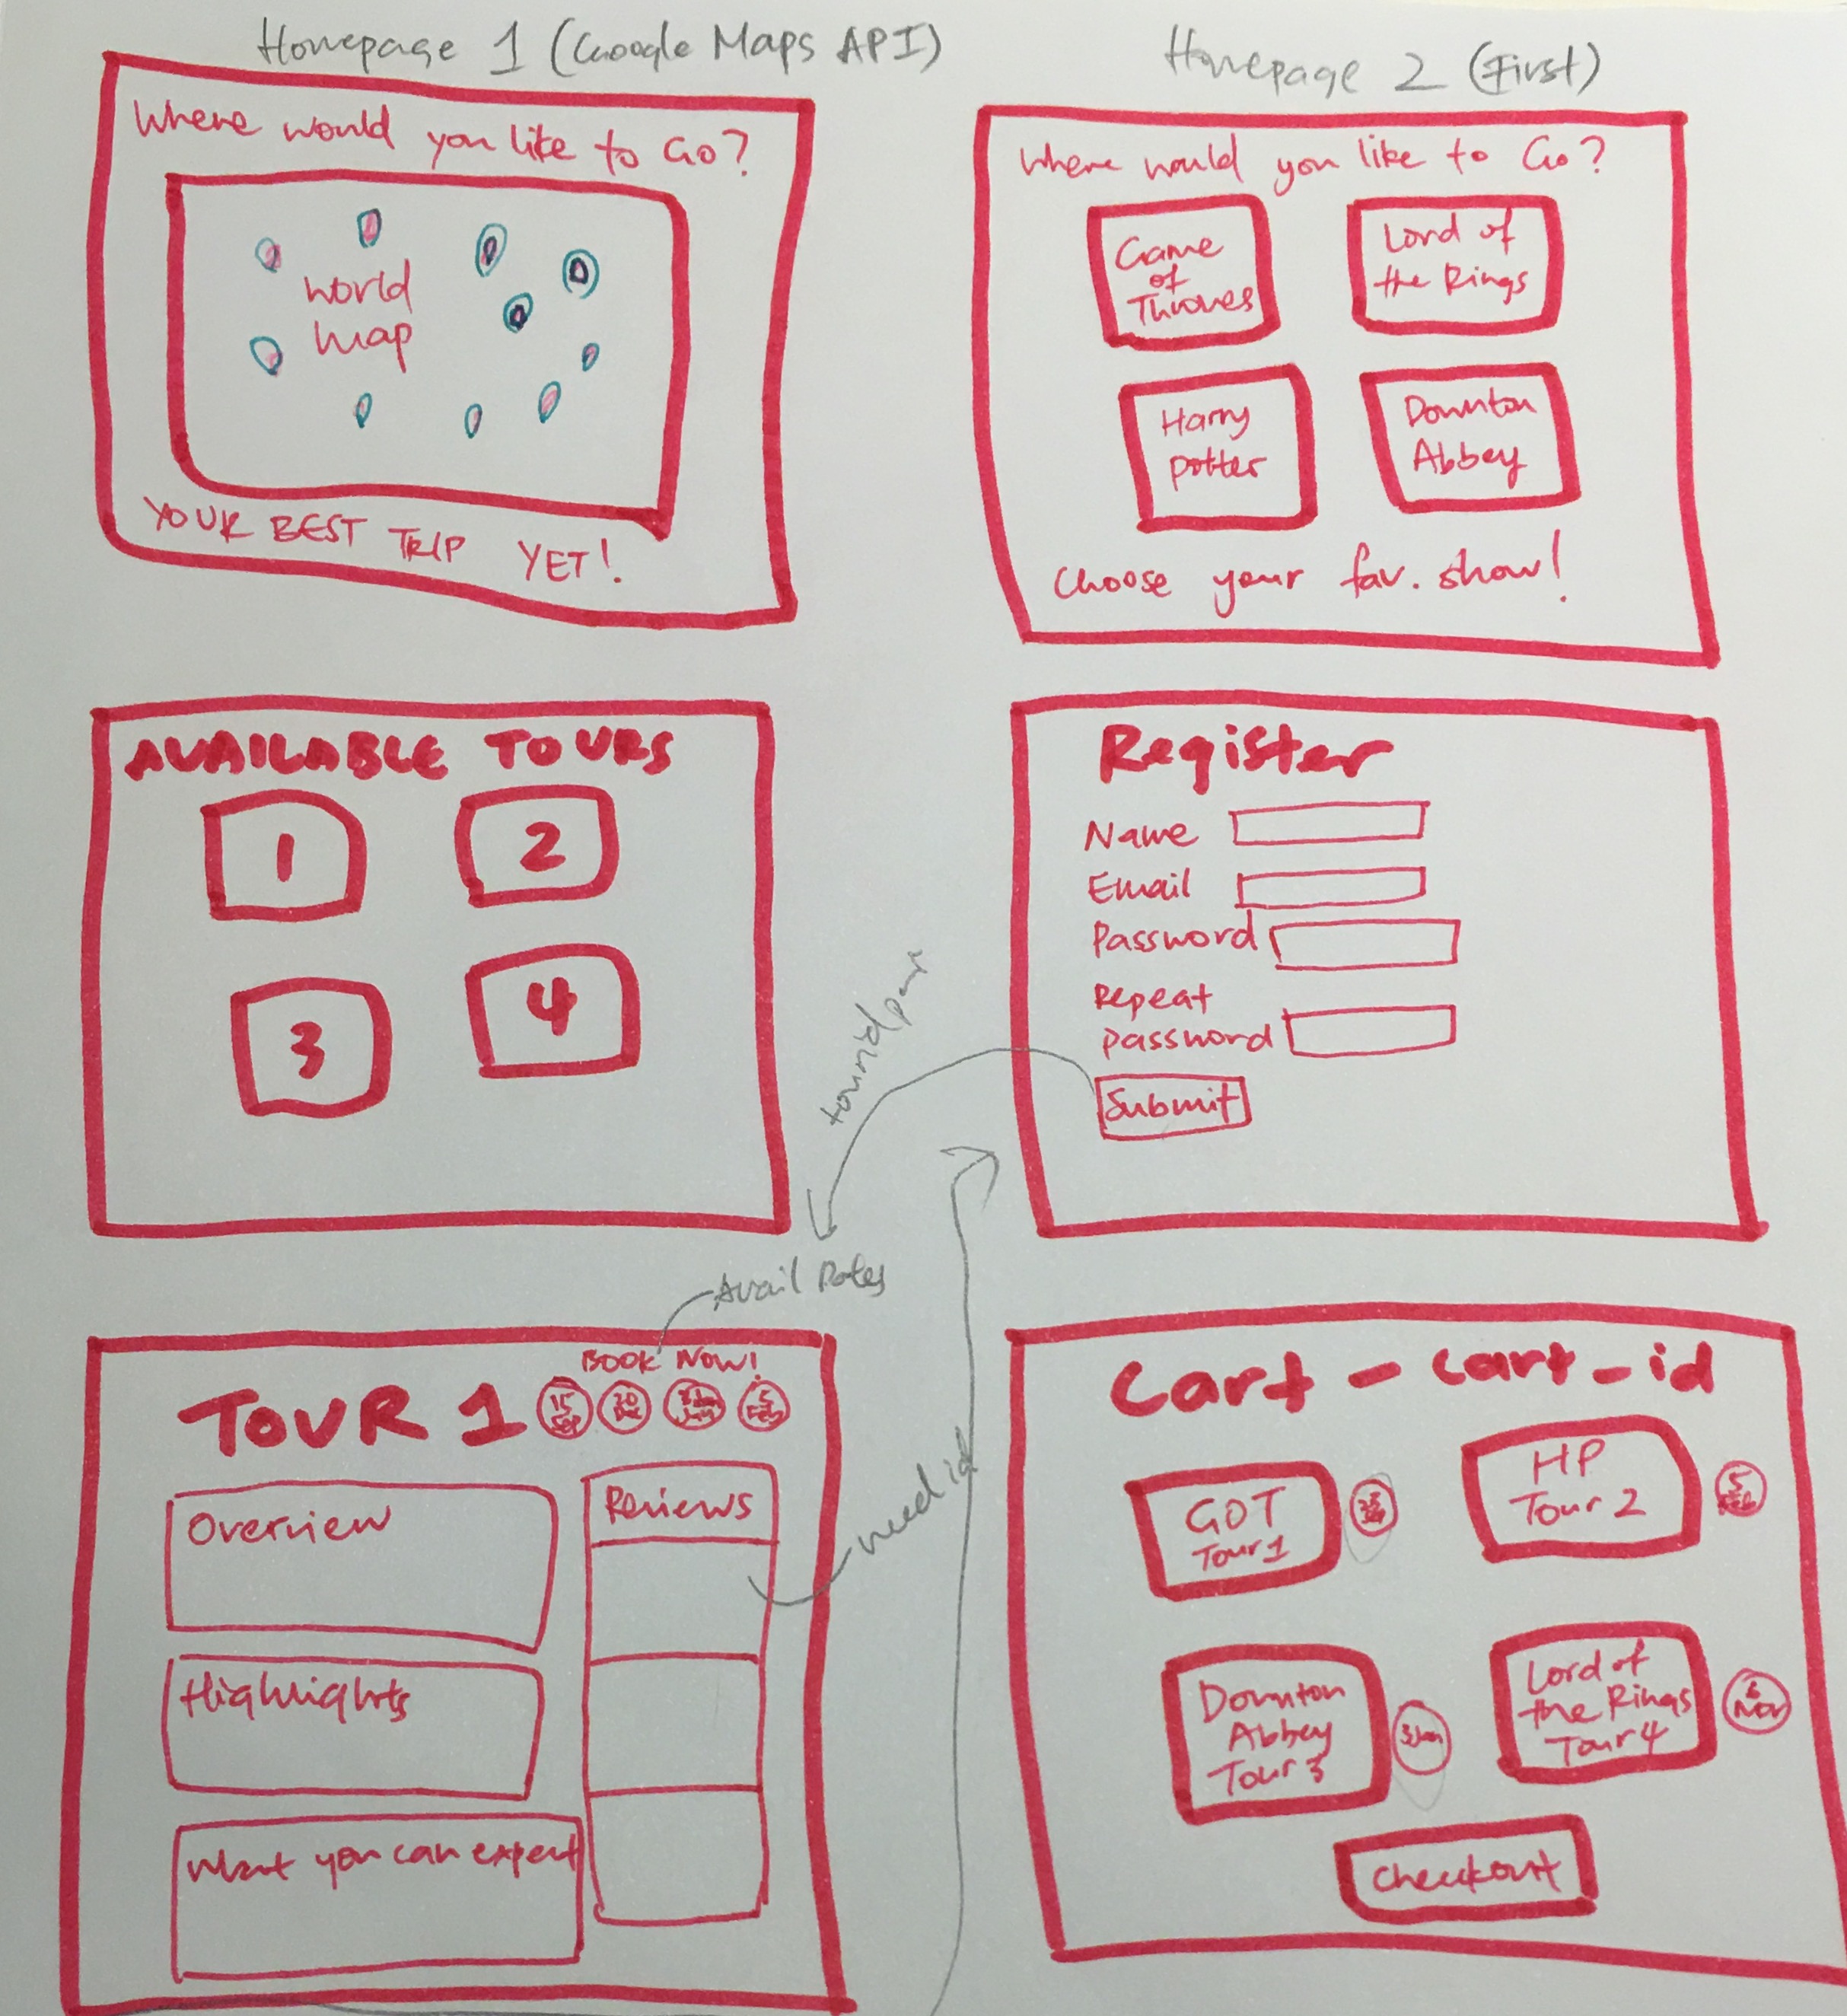 Homepage 1 (Google Maps API)
Where would you like to Go?
world
map
YOUR BEST TRIP YET!
Homepage 2 (First)
Where would you like to Go?
Game
of
Thrones
Lord of
the Rings
Harry
Potter
Downton
Abbey
Choose your fav. show!
AVAILABLE TOURS
1
2
3
4
Register
Name
Email
Password
Repeat
password
Submit
Avail Dates
BOOK NOW!
TOUR 1
15
Sep
20
Dec
Jan
5
Feb
Overview
Highlights
What you can expect
Reviews
need id
Cart - cart_id
GOT
Tour 1
HP
Tour 2
5
Feb
Downton
Abbey
Tour 3
3 Jan
Lord of
the Rings
Tour 4
6
Nov
Checkout